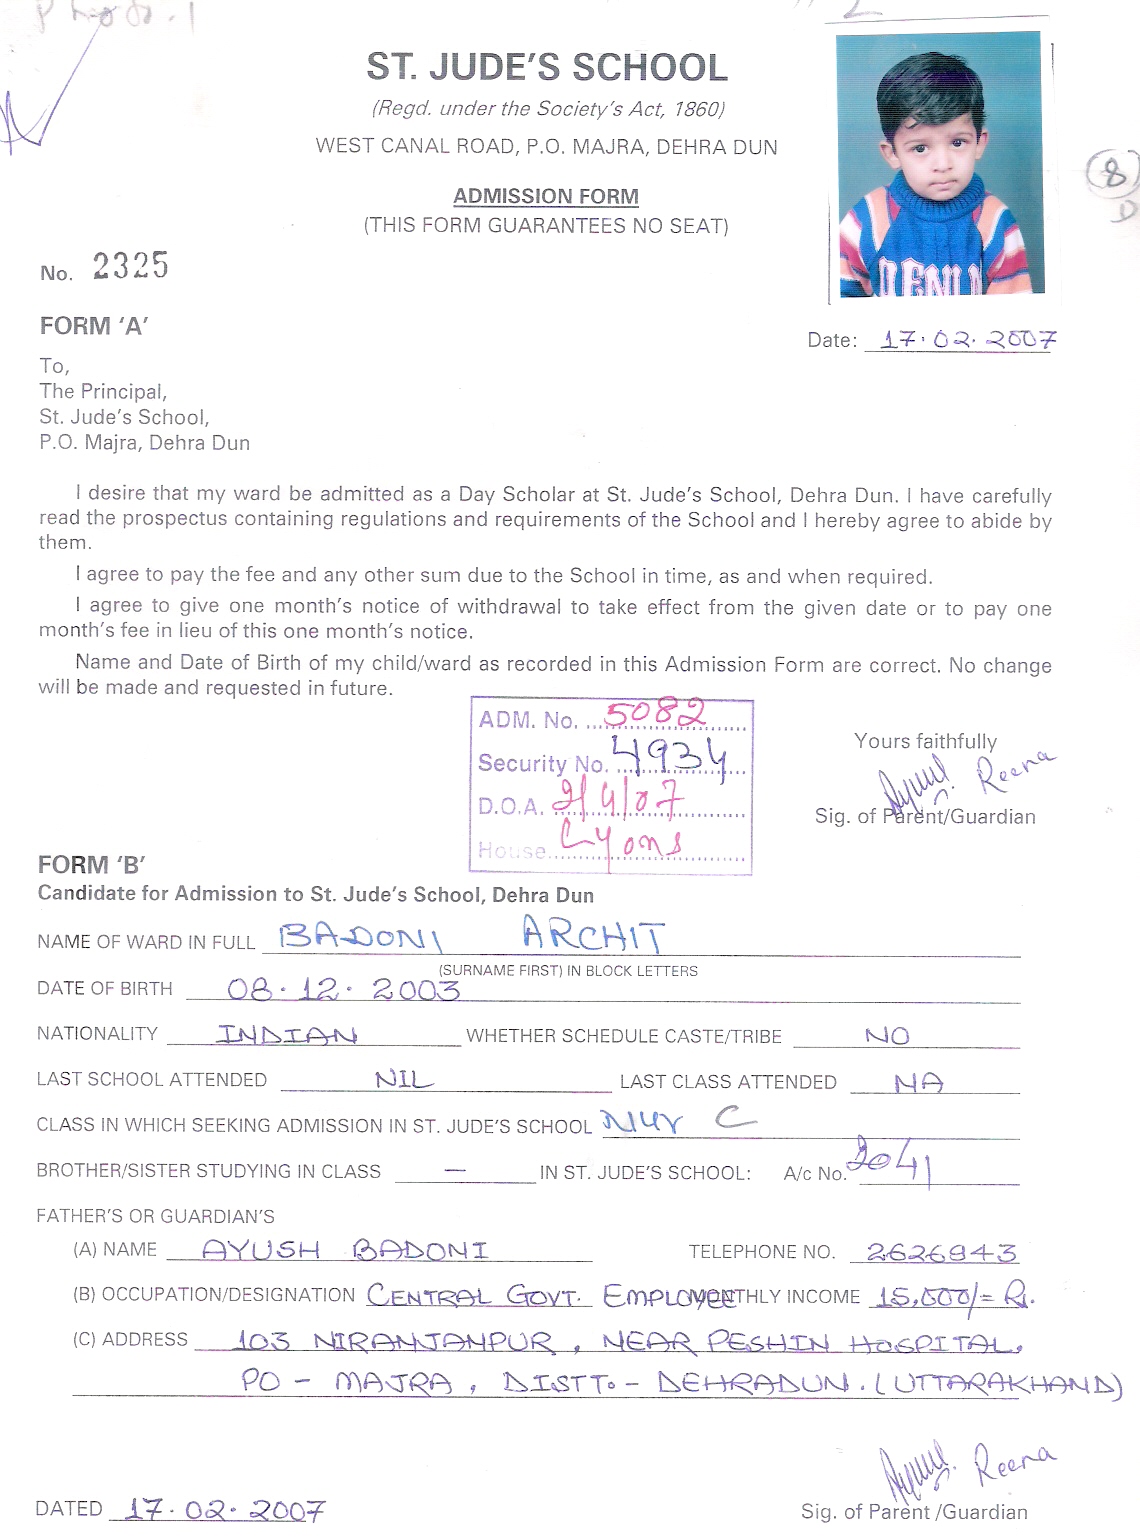 2
ST. JUDE'S SCHOOL
(Regd. under the Society's Act, 1860)
WEST CANAL ROAD, P.O. MAJRA, DEHRA DUN
8
D
ADMISSION FORM
(THIS FORM GUARANTEES NO SEAT)
No. 2325
FORM 'A'
Date: 17.02.2007
To,
The Principal,
St. Jude's School,
P.O. Majra, Dehra Dun
I desire that my ward be admitted as a Day Scholar at St. Jude's School, Dehra Dun. I have carefully
read the prospectus containing regulations and requirements of the School and I hereby agree to abide by
them.
I agree to pay the fee and any other sum due to the School in time, as and when required.
I agree to give one month's notice of withdrawal to take effect from the given date or to pay one
month's fee in lieu of this one month's notice.
Name and Date of Birth of my child/ward as recorded in this Admission Form are correct. No change
will be made and requested in future.
ADM. No. ...5082
Security No. 4934
D.O.A. 2/4/07
House Lyons
Yours faithfully
Reena
Sig. of Parent/Guardian
FORM 'B'
Candidate for Admission to St. Jude's School, Dehra Dun
NAME OF WARD IN FULL BADONI ARCHIT
(SURNAME FIRST) IN BLOCK LETTERS
DATE OF BIRTH 08.12.2003
NATIONALITY INDIAN WHETHER SCHEDULE CASTE/TRIBE NO
LAST SCHOOL ATTENDED NIL LAST CLASS ATTENDED NA
CLASS IN WHICH SEEKING ADMISSION IN ST. JUDE'S SCHOOL Nur C
BROTHER/SISTER STUDYING IN CLASS — IN ST. JUDE'S SCHOOL: A/c No. 2041
FATHER'S OR GUARDIAN'S
(A) NAME AYUSH BADONI TELEPHONE NO. 2626943
(B) OCCUPATION/DESIGNATION CENTRAL GOVT. EMPLOYEE MONTHLY INCOME 15,000/= Rs.
(C) ADDRESS 103 NIRANJANPUR, NEAR PESHIN HOSPITAL,
PO - MAJRA, DISTT. - DEHRADUN. (UTTARAKHAND)
Reena
DATED 17.02.2007
Sig. of Parent/Guardian